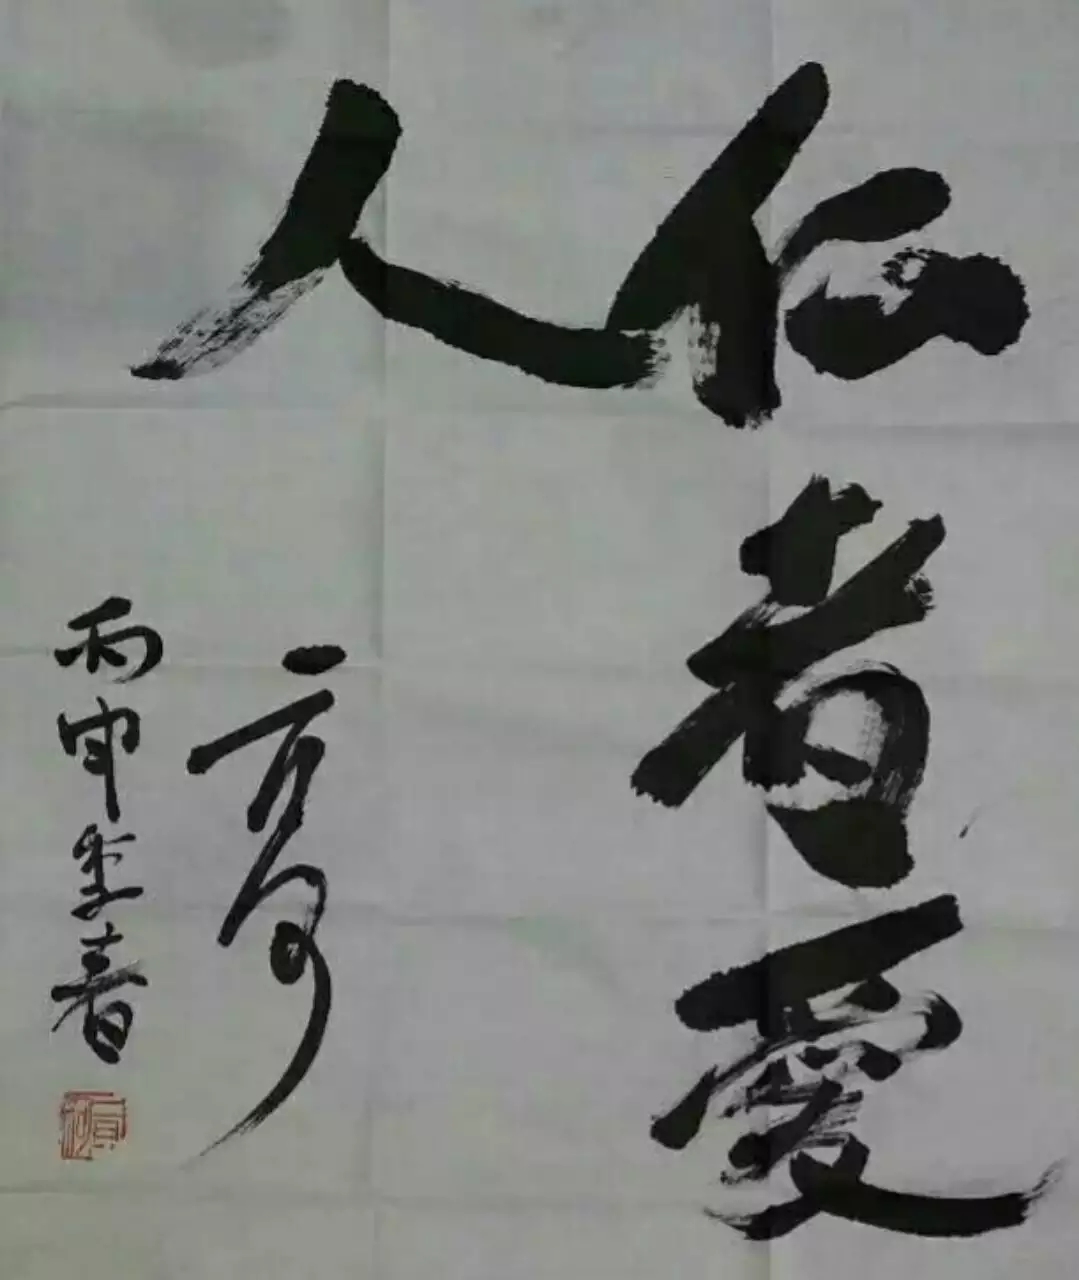 仁者愛
人
丙申季春